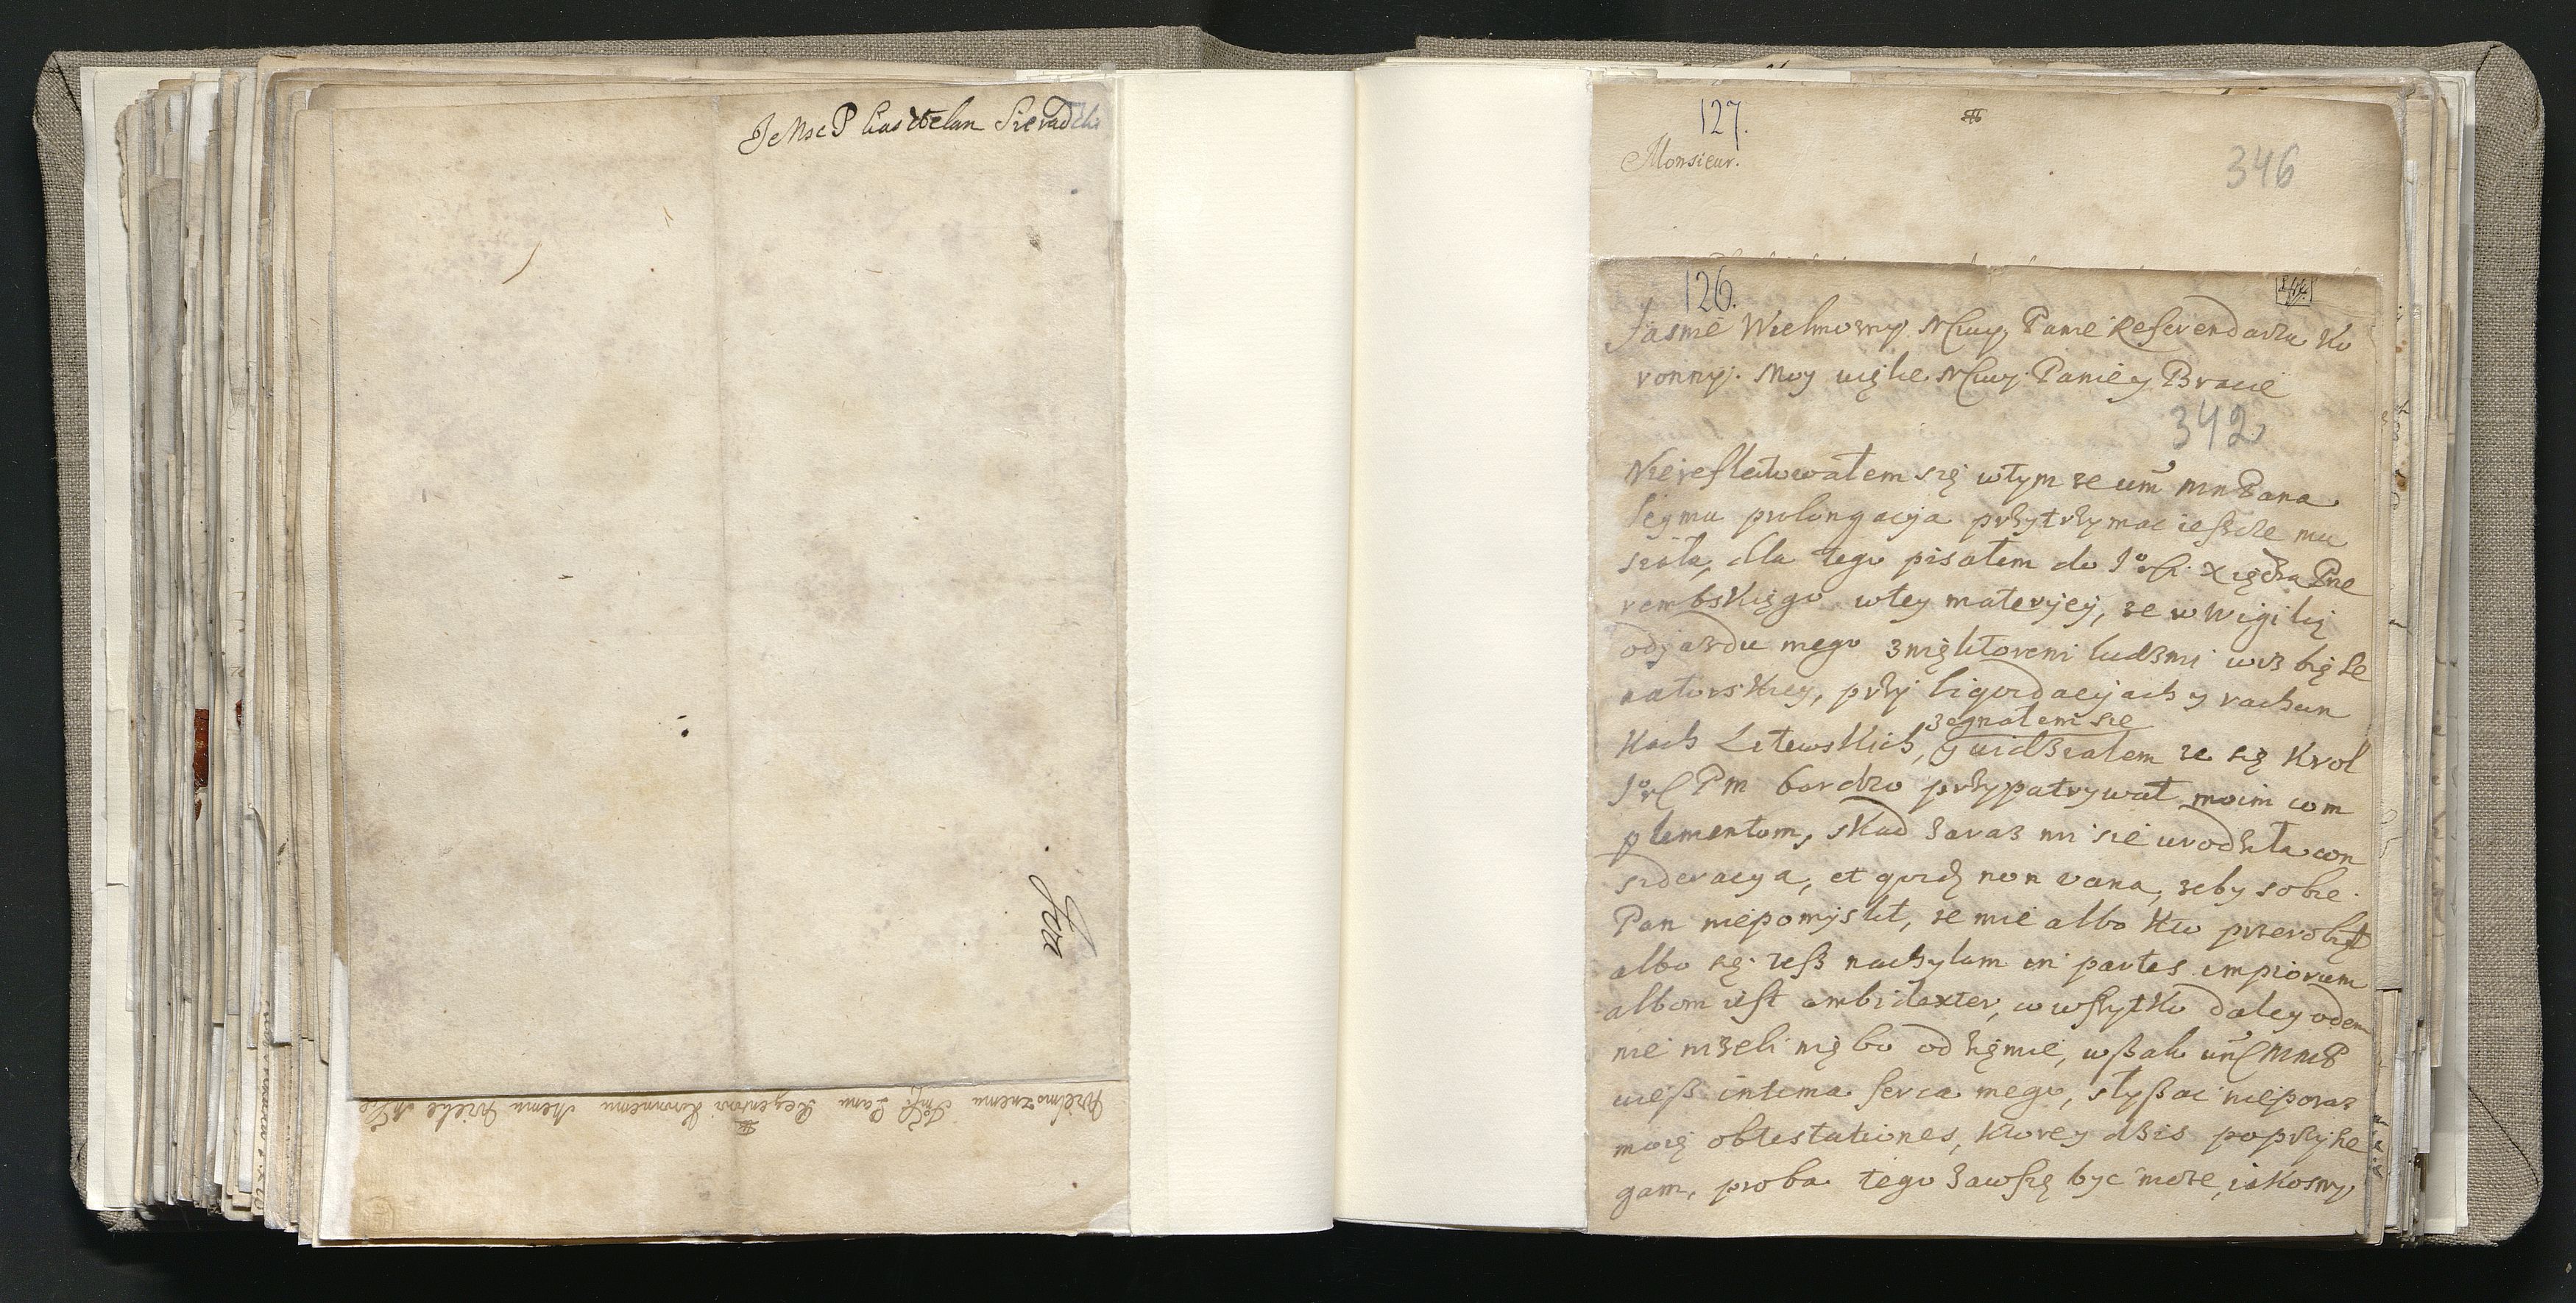 JeMsc P Kasztelan Sieradzki
Wielmoznemu Panu Regentowi Koronnemu Memu Wielce
127.
Monsieur.
346
126.
Jasnie Wielmozny Mſciwy Panie Referendarzu Ko
ronny. Moy więlce Mſciwy Panie y Bracie
342
Niereflectowałem się wtym ze mnPana
Seymu prolongacyja przytrzymac ieſzcze mu
siała, dla tego pisałem do Xiędza Pre
rembskięgo wtey materyey, ze w Wigilią
odjazdu mego znięktoremi ludzmi wizbię Se
natorskiey, przy liqvidacyjach y rachun
kach Litewskich, zegnałem sie
y widziałem ze się Krol
Pm bardzo przypatrywał moim com
plementom, skad zaraz mi sie urodziła con
sideracya, et qvidę non vana, zeby sobie
Pan niepomyslił, ze mie albo kto przerobił
albo się teſz nachylam in partes impiorum
albom ieſt ambidexter, co wſzytko daley odem
nie nizeli niębo od zięmie, wſzak MmP
wieſz intima ſerca mego, słyſzac nieporaz
moię obtestationes, ktorey dzis poprzysię
gam, proba tego zawſzę byc moze, iakosmy